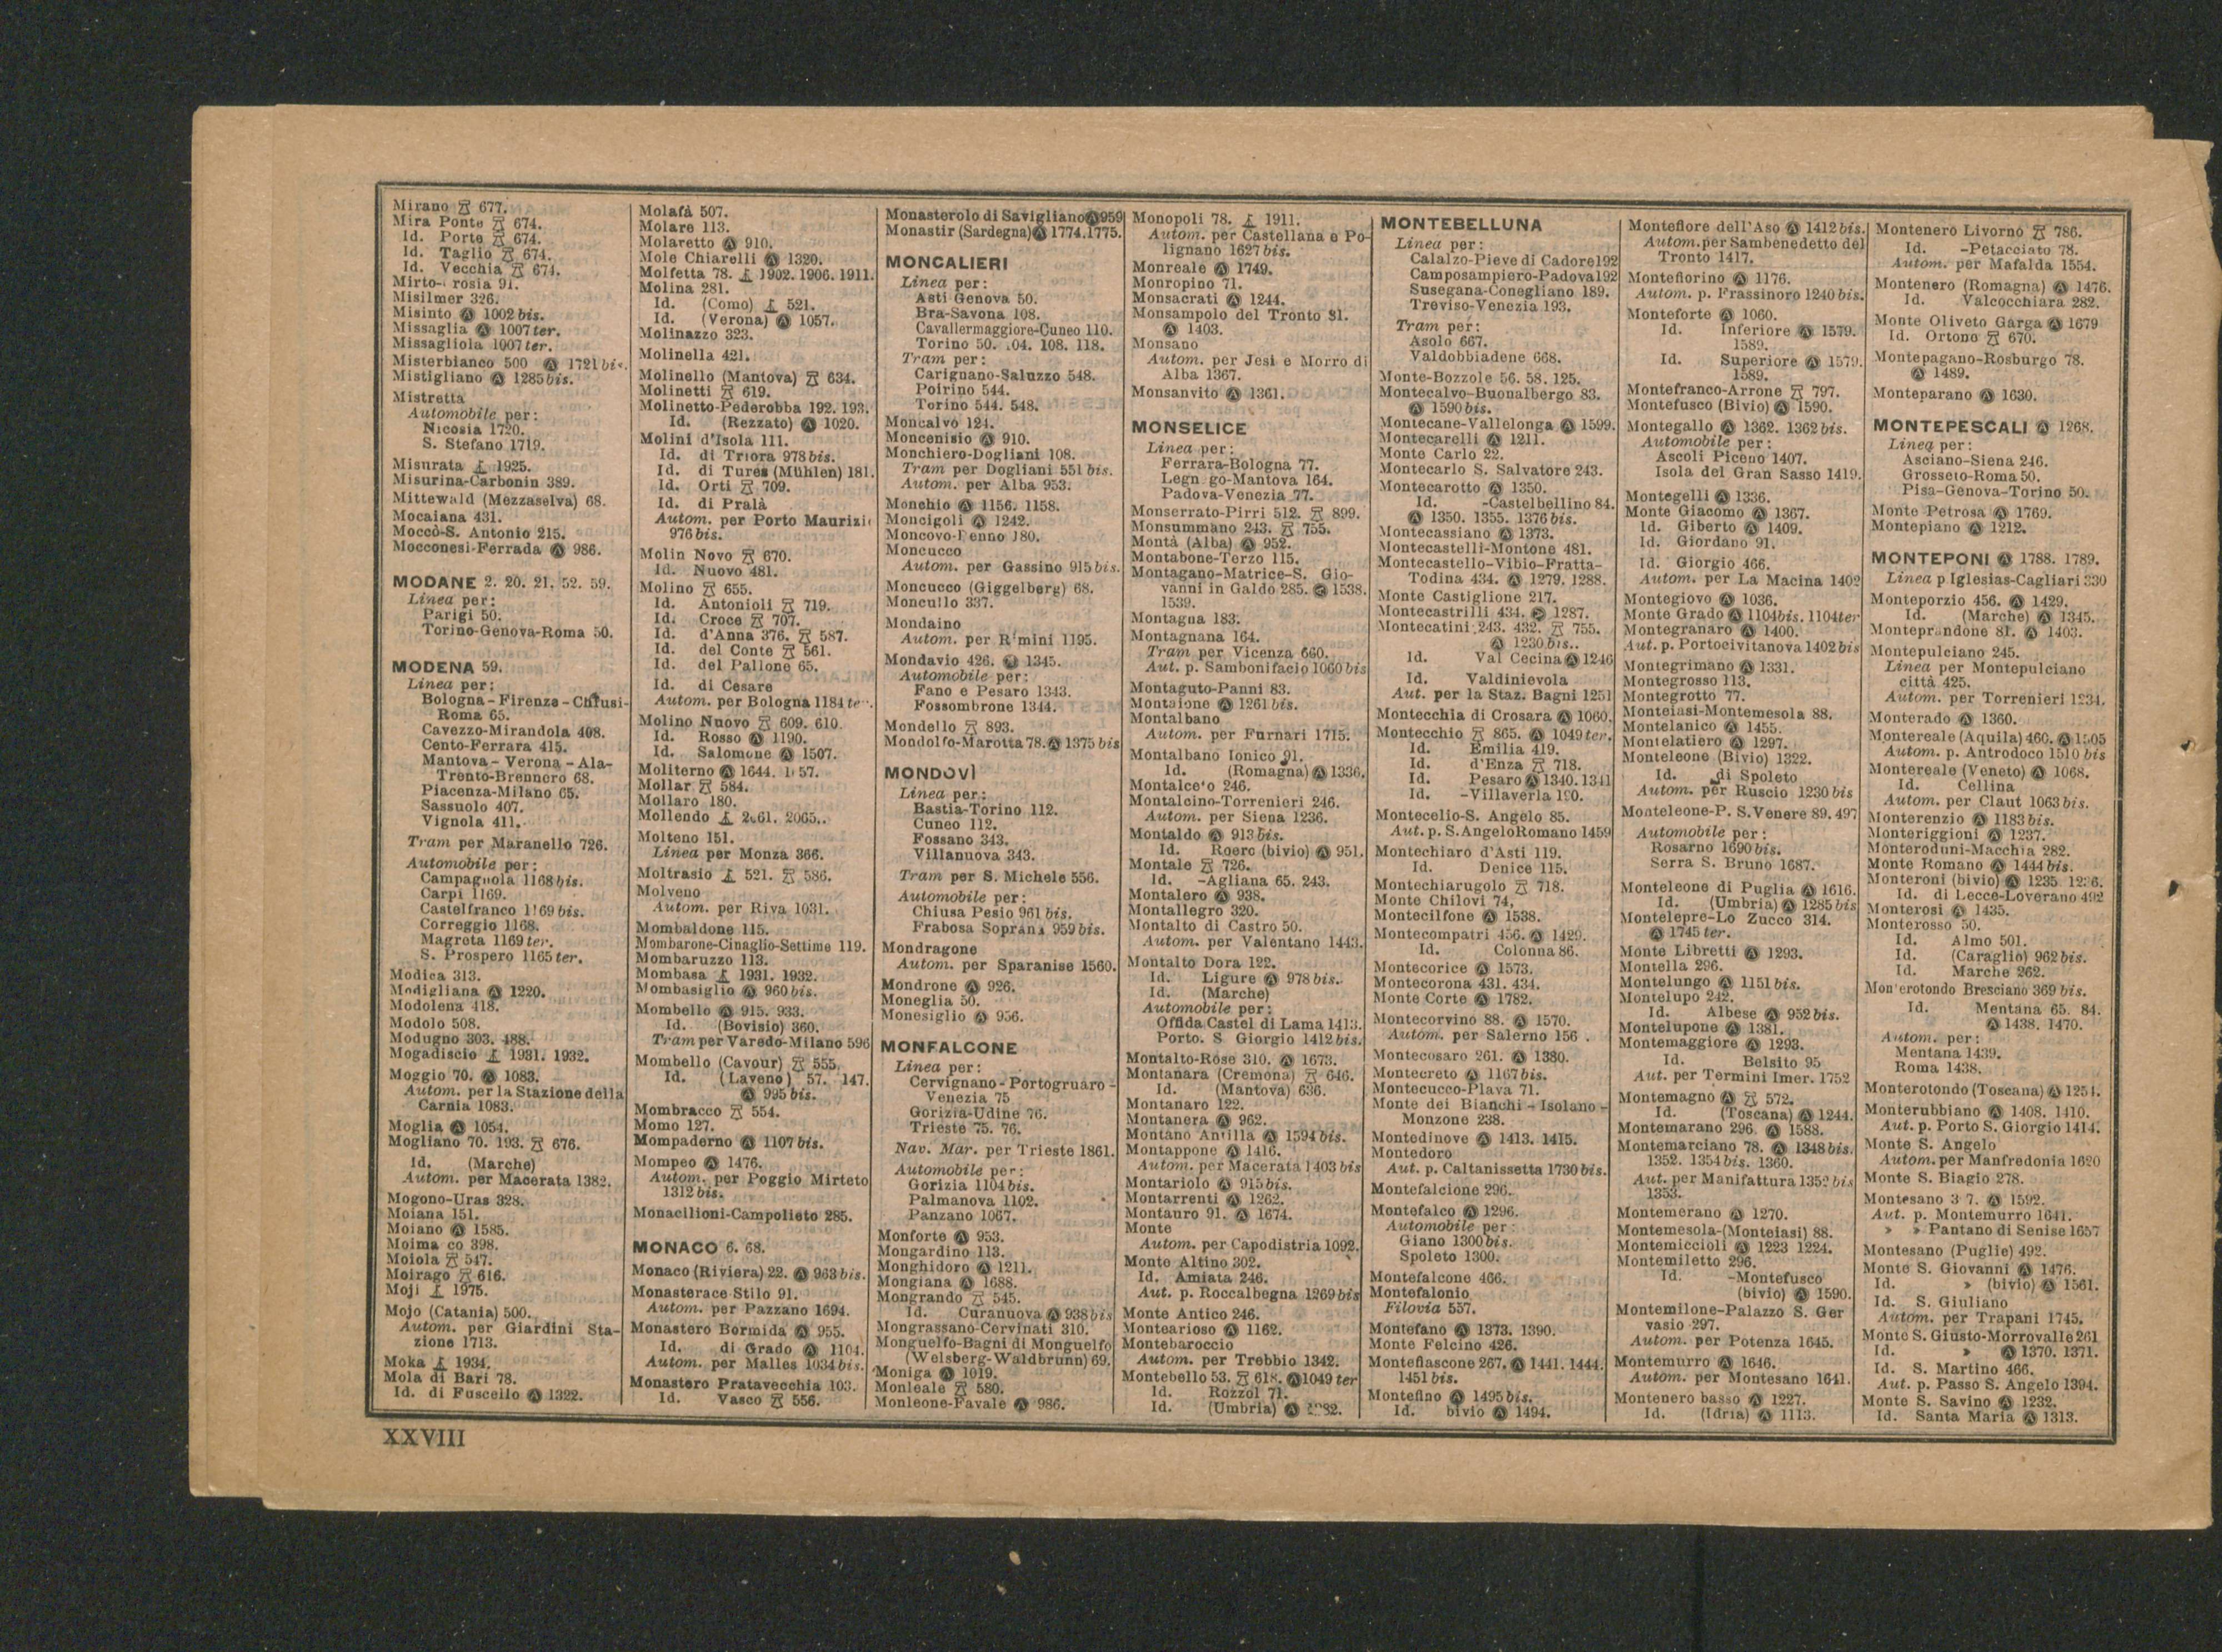 Mirano 677.
Mira Ponte 674.
Id. Porte 674.
Id. Taglio 674.
Id. Vecchia 674.
Mirto- rosia 91.
Misilmer 326.
Misinto Ⓐ 1002 bis.
Missaglia Ⓐ 1007 ter.
Missagliola 1007 ter.
Misterbianco 500 Ⓐ 1721 bis.
Mistigliano Ⓐ 1285 bis.
Mistretta
Automobile per:
Nicosia 1720.
S. Stefano 1719.
Misurata 1925.
Misurina-Carbonin 389.
Mittewald (Mezzaselva) 68.
Mocaiana 431.
Moccò-S. Antonio 215.
Mocconesi-Ferrada Ⓐ 986.
MODANE 2. 20. 21. 52. 59.
Linea per:
Parigi 50.
Torino-Genova-Roma 50.
MODENA 59.
Linea per:
Bologna-Firenze-Chiusi-
Roma 65.
Cavezzo-Mirandola 408.
Cento-Ferrara 415.
Mantova-Verona-Ala-
Trento-Brennero 68.
Piacenza-Milano 65.
Sassuolo 407.
Vignola 411.
Tram per Maranello 726.
Automobile per:
Campagnola 1168 bis.
Carpi 1169.
Castelfranco 1169 bis.
Correggio 1168.
Magreta 1169 ter.
S. Prospero 1165 ter.
Modica 313.
Modigliana Ⓐ 1220.
Modolena 418.
Modolo 508.
Modugno 303. 488.
Mogadiscio 1931. 1932.
Moggio 70. Ⓐ 1083.
Autom. per la Stazione della
Carnia 1083.
Moglia Ⓐ 1054.
Mogliano 70. 193. 676.
Id. (Marche)
Autom. per Macerata 1382.
Mogono-Uras 328.
Moiana 151.
Moiano Ⓐ 1585.
Moima co 398.
Moiola 547.
Moirago 616.
Moji 1975.
Mojo (Catania) 500.
Autom. per Giardini Sta-
zione 1713.
Moka 1934.
Mola di Bari 78.
Id. di Fuscello Ⓐ 1322.
Molafà 507.
Molare 113.
Molaretto Ⓐ 910.
Mole Chiarelli Ⓐ 1320.
Molfetta 78. 1902. 1906. 1911.
Molina 281.
Id. (Como) 521.
Id. (Verona) Ⓐ 1057.
Molinazzo 323.
Molinella 421.
Molinello (Mantova) 634.
Molinetti 619.
Molinetto-Pederobba 192. 193.
Id. (Rezzato) Ⓐ 1020.
Molini d'Isola 111.
Id. di Triora 978 bis.
Id. di Tures (Mühlen) 181.
Id. Orti 709.
Id. di Pralà
Autom. per Porto Maurizi
976 bis.
Molin Novo 670.
Id. Nuovo 481.
Molino 655.
Id. Antonioli 719.
Id. Croce 707.
Id. d'Anna 376. 587.
Id. del Conte 561.
Id. del Pallone 65.
Id. di Cesare
Autom. per Bologna 1184 ter.
Molino Nuovo 609. 610.
Id. Rosso Ⓐ 1190.
Id. Salomone Ⓐ 1507.
Moliterno Ⓐ 1644. 1 57.
Mollar 584.
Mollaro 180.
Mollendo 2061. 2065.
Molteno 151.
Linea per Monza 366.
Moltrasio 521. 586.
Molveno
Autom. per Riva 1031.
Mombaldone 115.
Mombarone-Cinaglio-Settime 119.
Mombaruzzo 113.
Mombasa 1931. 1932.
Mombasiglio Ⓐ 960 bis.
Mombello Ⓐ 915. 933.
Id. (Bovisio) 360.
Tram per Varedo-Milano 596
Mombello (Cavour) 555.
Id. (Laveno) 57. 147.
Ⓐ 995 bis.
Mombracco 554.
Momo 127.
Mompaderno Ⓐ 1107 bis.
Mompeo Ⓐ 1476.
Autom. per Poggio Mirteto
1312 bis.
Monacilioni-Campolieto 285.
MONACO 6. 68.
Monaco (Riviera) 22. Ⓐ 963 bis.
Monasterace Stilo 91.
Autom. per Pazzano 1694.
Monastero Bormida Ⓐ 955.
Id. di Grado Ⓐ 1104.
Autom. per Malles 1034 bis.
Monastero Pratavecchia 103.
Id. Vasco 556.
Monasterolo di Savigliano Ⓐ 959
Monastir (Sardegna) Ⓐ 1774. 1775.
MONCALIERI
Linea per:
Asti Genova 50.
Bra-Savona 108.
Cavallermaggiore-Cuneo 110.
Torino 50. 104. 108. 118.
Tram per:
Carignano-Saluzzo 548.
Poirino 544.
Torino 544. 548.
Moncalvo 124.
Moncenisio Ⓐ 910.
Monchiero-Dogliani 108.
Tram per Dogliani 551 bis.
Autom. per Alba 953.
Monchio Ⓐ 1156. 1158.
Moncigoli Ⓐ 1242.
Moncovo-Penno 180.
Moncucco
Autom. per Gassino 915 bis.
Moncucco (Giggelberg) 68.
Moncullo 337.
Mondaino
Autom. per Rimini 1195.
Mondavio 426. Ⓐ 1345.
Automobile per:
Fano e Pesaro 1343.
Fossombrone 1344.
Mondello 893.
Mondolfo-Marotta 78. Ⓐ 1375 bis
MONDOVÌ
Linea per:
Bastia-Torino 112.
Cuneo 112.
Fossano 343.
Villanuova 343.
Tram per S. Michele 556.
Automobile per:
Chiusa Pesio 961 bis.
Frabosa Soprana 959 bis.
Mondragone
Autom. per Sparanise 1560.
Mondrone Ⓐ 926.
Moneglia 50.
Monesiglio Ⓐ 956.
MONFALCONE
Linea per:
Cervignano-Portogruaro-
Venezia 75
Gorizia-Udine 76.
Trieste 75. 76.
Nav. Mar. per Trieste 1861.
Automobile per:
Gorizia 1104 bis.
Palmanova 1102.
Panzano 1067.
Monforte Ⓐ 953.
Mongardino 113.
Monghidoro Ⓐ 1211.
Mongiana Ⓐ 1688.
Mongrando 545.
Id. Curanuova Ⓐ 938 bis
Mongrassano-Cervinati 310.
Monguelfo-Bagni di Monguelfo
(Welsberg-Waldbrunn) 69.
Moniga Ⓐ 1019.
Monleale 580.
Monleone-Favale Ⓐ 986.
Monopoli 78. 1911.
Autom. per Castellana e Po-
lignano 1627 bis.
Monreale Ⓐ 1749.
Monropino 71.
Monsacrati Ⓐ 1244.
Monsampolo del Tronto 81.
Ⓐ 1403.
Monsano
Autom. per Jesi e Morro di
Alba 1367.
Monsanvito Ⓐ 1361.
MONSELICE
Linea per:
Ferrara-Bologna 77.
Legn go-Mantova 164.
Padova-Venezia 77.
Monserrato-Pirri 512. 899.
Monsummano 243. 755.
Montà (Alba) Ⓐ 952.
Montabone-Terzo 115.
Montagano-Matrice-S. Gio-
vanni in Galdo 285. Ⓐ 1538.
1539.
Montagna 183.
Montagnana 164.
Tram per Vicenza 660.
Aut. p. Sambonifacio 1060 bis
Montaguto-Panni 83.
Montaione Ⓐ 1261 bis.
Montalbano
Autom. per Furnari 1715.
Montalbano Ionico 91.
Id. (Romagna) Ⓐ 1336.
Montalceto 246.
Montalcino-Torrenieri 246.
Autom. per Siena 1236.
Montaldo Ⓐ 913 bis.
Id. Roero (bivio) Ⓐ 951.
Montale 726.
Id. -Agliana 65. 243.
Montalero Ⓐ 938.
Montallegro 320.
Montalto di Castro 50.
Autom. per Valentano 1443.
Montalto Dora 122.
Id. Ligure Ⓐ 978 bis.
Id. (Marche)
Automobile per:
Offida Castel di Lama 1413.
Porto. S Giorgio 1412 bis.
Montalto-Rose 310. Ⓐ 1673.
Montanara (Cremona) 646.
Id. (Mantova) 636.
Montanaro 122.
Montanera Ⓐ 962.
Montano Antilla Ⓐ 1594 bis.
Montappone Ⓐ 1416.
Autom. per Macerata 1403 bis
Montariolo Ⓐ 915 bis.
Montarrenti Ⓐ 1262.
Montauro 91. Ⓐ 1674.
Monte
Autom. per Capodistria 1092.
Monte Altino 302.
Id. Amiata 246.
Aut. p. Roccalbegna 1269 bis
Monte Antico 246.
Montearioso Ⓐ 1162.
Montebaroccio
Autom. per Trebbio 1342.
Montebello 53. 618. Ⓐ 1049 ter
Id. Rozzol 71.
Id. (Umbria) Ⓐ 1282.
MONTEBELLUNA
Linea per:
Calalzo-Pieve di Cadore 192
Camposampiero-Padova 192
Susegana-Conegliano 189.
Treviso-Venezia 193.
Tram per:
Asolo 667.
Valdobbiadene 668.
Monte-Bozzole 56. 58. 125.
Montecalvo-Buonalbergo 83.
Ⓐ 1590 bis.
Montecane-Vallelonga Ⓐ 1599.
Montecarelli Ⓐ 1211.
Monte Carlo 22.
Montecarlo S. Salvatore 243.
Montecarotto Ⓐ 1350.
Id. -Castelbellino 84.
Ⓐ 1350. 1355. 1376 bis.
Montecassiano Ⓐ 1373.
Montecastelli-Montone 481.
Montecastello-Vibio-Fratta-
Todina 434. Ⓐ 1279. 1288.
Monte Castiglione 217.
Montecastrilli 434. Ⓐ 1287.
Montecatini 243. 432. 755.
Ⓐ 1230 bis.
Id. Val Cecina Ⓐ 1246
Id. Valdinievola
Aut. per la Staz. Bagni 1251
Montecchia di Crosara Ⓐ 1060.
Montecchio 865. Ⓐ 1049 ter.
Id. Emilia 419.
Id. d'Enza 718.
Id. Pesaro Ⓐ 1340. 1341
Id. -Villaverla 190.
Montecelio-S. Angelo 85.
Aut. p. S. Angelo Romano 1459
Montechiaro d'Asti 119.
Id. Denice 115.
Montechiarugolo 718.
Monte Chilovi 74.
Montecilfone Ⓐ 1538.
Montecompatri 456. Ⓐ 1429.
Id. Colonna 86.
Montecorice Ⓐ 1573.
Montecorona 431. 434.
Monte Corte Ⓐ 1782.
Montecorvino 88. Ⓐ 1570.
Autom. per Salerno 156 .
Montecosaro 261. Ⓐ 1380.
Montecreto Ⓐ 1167 bis.
Montecucco-Plava 71.
Monte dei Bianchi-Isolano-
Monzone 238.
Montedinove Ⓐ 1413. 1415.
Montedoro
Aut. p. Caltanissetta 1730 bis.
Montefalcione 296.
Montefalco Ⓐ 1296.
Automobile per:
Giano 1300 bis.
Spoleto 1300.
Montefalcone 466.
Montefalonio
Filovia 557.
Montefano Ⓐ 1373. 1390.
Monte Felcino 426.
Montefiascone 267. Ⓐ 1441. 1444.
1451 bis.
Montefino Ⓐ 1495 bis.
Id. bivio Ⓐ 1494.
Montefiore dell'Aso Ⓐ 1412 bis.
Autom. per Sambenedetto del
Tronto 1417.
Montefiorino Ⓐ 1176.
Autom. p. Frassinoro 1240 bis.
Monteforte Ⓐ 1060.
Id. Inferiore Ⓐ 1579.
1589.
Id. Superiore Ⓐ 1579.
1589.
Montefranco-Arrone 797.
Montefusco (Bivio) Ⓐ 1590.
Montegallo Ⓐ 1362. 1362 bis.
Automobile per:
Ascoli Piceno 1407.
Isola del Gran Sasso 1419.
Montegelli Ⓐ 1336.
Monte Giacomo Ⓐ 1367.
Id. Giberto Ⓐ 1409.
Id. Giordano 91.
Id. Giorgio 466.
Autom. per La Macina 1402
Montegiovo Ⓐ 1036.
Monte Grado Ⓐ 1104 bis. 1104 ter
Montegranaro Ⓐ 1400.
Aut. p. Portocivitanova 1402 bis
Montegrimano Ⓐ 1331.
Montegrosso 113.
Montegrotto 77.
Monteiasi-Montemesola 88.
Montelanico Ⓐ 1455.
Montelatiero Ⓐ 1297.
Monteleone (Bivio) 1322.
Id. di Spoleto
Autom. per Ruscio 1230 bis
Monteleone-P. S. Venere 89. 497
Automobile per:
Rosarno 1690 bis.
Serra S. Bruno 1687.
Monteleone di Puglia Ⓐ 1616.
Id. (Umbria) Ⓐ 1285 bis
Montelepre-Lo Zucco 314.
Ⓐ 1745 ter.
Monte Libretti Ⓐ 1293.
Montella 296.
Montelungo Ⓐ 1151 bis.
Montelupo 242.
Id. Albese Ⓐ 952 bis.
Montelupone Ⓐ 1381.
Montemaggiore Ⓐ 1293.
Id. Belsito 95
Aut. per Termini Imer. 1752
Montemagno Ⓐ 572.
Id. (Toscana) Ⓐ 1244.
Montemarano 296. Ⓐ 1588.
Montemarciano 78. Ⓐ 1348 bis.
1352. 1354 bis. 1360.
Aut. per Manifattura 1352 bis
1353.
Montemerano Ⓐ 1270.
Montemesola-(Monteiasi) 88.
Montemiccioli Ⓐ 1223 1224.
Montemiletto 296.
Id. -Montefusco
(bivio) Ⓐ 1590.
Montemilone-Palazzo S. Ger
vasio 297.
Autom. per Potenza 1645.
Montemurro Ⓐ 1646.
Autom. per Montesano 1641.
Montenero basso Ⓐ 1227.
Id. (Idria) Ⓐ 1113.
Montenero Livorno 786.
Id. -Petacciato 78.
Autom. per Mafalda 1554.
Montenero (Romagna) Ⓐ 1476.
Id. Valcocchiara 282.
Monte Oliveto Garga Ⓐ 1679
Id. Ortono 670.
Montepagano-Rosburgo 78.
Ⓐ 1489.
Monteparano Ⓐ 1630.
MONTEPESCALI Ⓐ 1268.
Linea per:
Asciano-Siena 246.
Grosseto-Roma 50.
Pisa-Genova-Torino 50.
Monte Petrosa Ⓐ 1769.
Montepiano Ⓐ 1212.
MONTEPONI Ⓐ 1788. 1789.
Linea p Iglesias-Cagliari 330
Monteporzio 456. Ⓐ 1429.
Id. (Marche) Ⓐ 1345.
Monteprandone 81. Ⓐ 1403.
Montepulciano 245.
Linea per Montepulciano
città 425.
Autom. per Torrenieri 1234.
Monterado Ⓐ 1360.
Montereale (Aquila) 460. Ⓐ 1505
Autom. p. Antrodoco 1510 bis
Montereale (Veneto) Ⓐ 1068.
Id. Cellina
Autom. per Claut 1063 bis.
Monterenzio Ⓐ 1183 bis.
Monteriggioni Ⓐ 1237.
Monteroduni-Macchia 282.
Monte Romano Ⓐ 1444 bis.
Monteroni (bivio) Ⓐ 1235 1236.
Id. di Lecce-Loverano 492
Monterosi Ⓐ 1435.
Monterosso 50.
Id. Almo 501.
Id. (Caraglio) 962 bis.
Id. Marche 262.
Monterotondo Bresciano 369 bis.
Id. Mentana 65. 84.
Ⓐ 1438. 1470.
Autom. per:
Mentana 1439.
Roma 1438.
Monterotondo (Toscana) Ⓐ 1254.
Monterubbiano Ⓐ 1408. 1410.
Aut. p. Porto S. Giorgio 1414.
Monte S. Angelo
Autom. per Manfredonia 1620
Monte S. Biagio 278.
Montesano 3 7. Ⓐ 1592.
Aut. p. Montemurro 1641.
» » Pantano di Senise 1657
Montesano (Puglie) 492.
Monte S. Giovanni Ⓐ 1476.
Id. » (bivio) Ⓐ 1561.
Id. S. Giuliano
Autom. per Trapani 1745.
Monte S. Giusto-Morrovalle 261
Id. » Ⓐ 1370. 1371.
Id. S. Martino 466.
Aut. p. Passo S. Angelo 1394.
Monte S. Savino Ⓐ 1232.
Id. Santa Maria Ⓐ 1313.
XXVIII